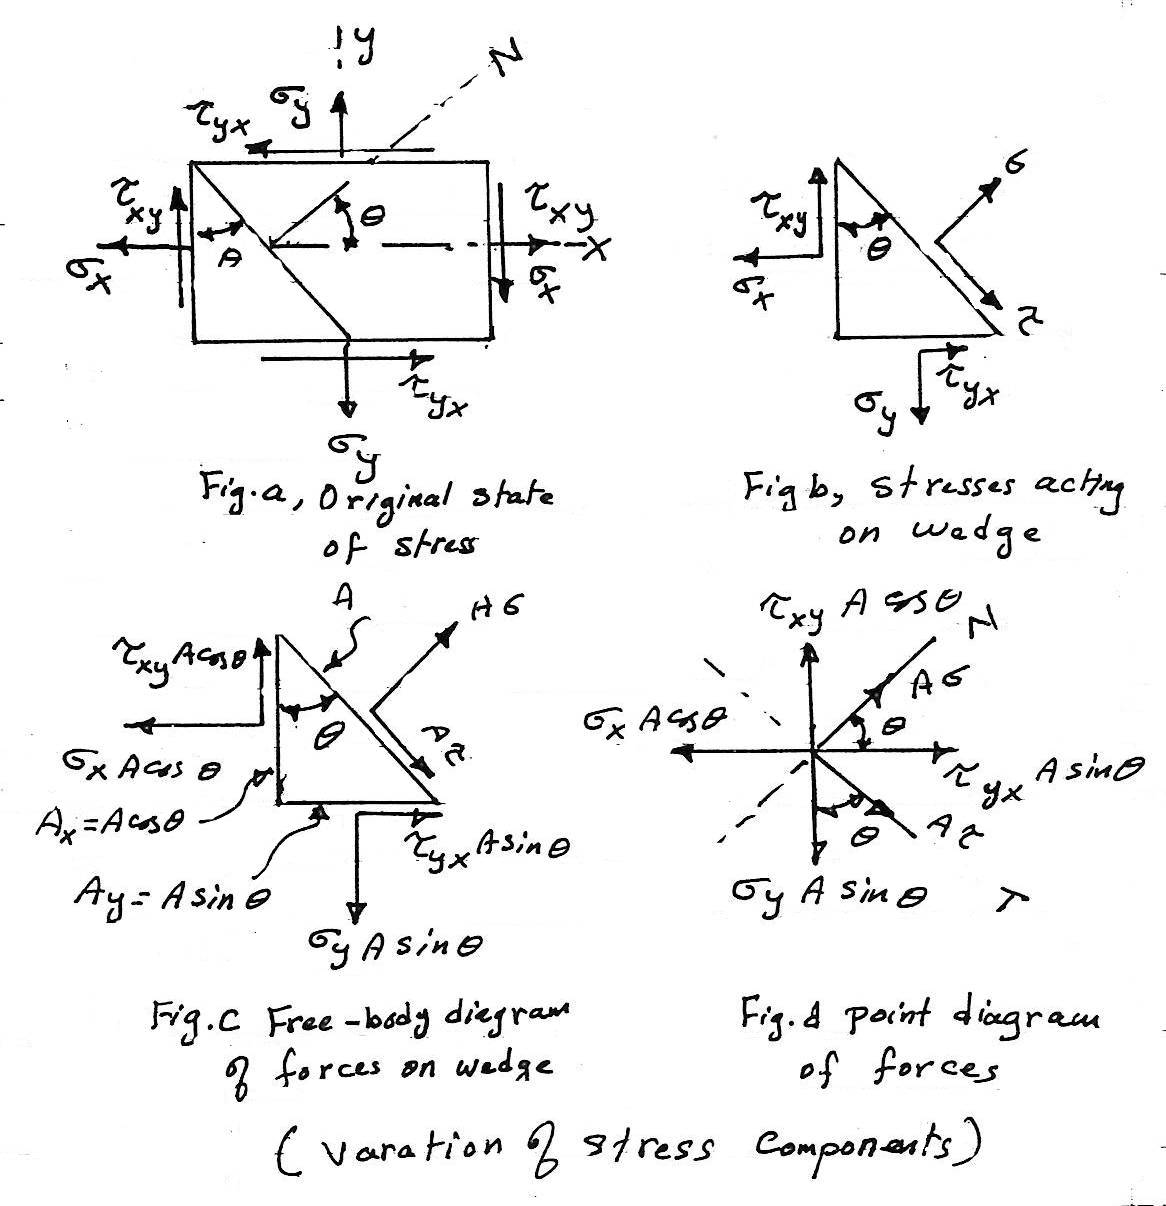 y
N
σy
τyx
τxy
θ
τxy
σx
θ
X
σx
τyx
σy
Fig.a, Original state
of stress
σ
τxy
θ
σx
τ
τyx
σy
Fig b, stresses acting
on wedge
A
Aσ
τxy A cosθ
θ
Aτ
σx A cos θ
Ax = A cosθ
τyx A sin θ
Ay = A sin θ
σy A sin θ
Fig.c Free-body diegram
of forces on wedge
τxy A cosθ
N
Aσ
σx A cosθ
θ
τyx A sinθ
θ
Aτ
σy A sin θ
T
Fig.d point diagram
of forces
(varation of stress components)